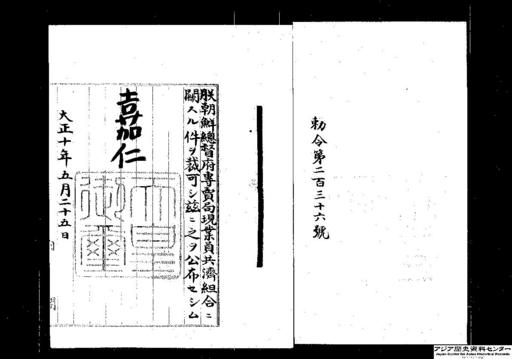 勅令第二百三十六號
朕朝鮮總督府專賣局現業員共濟組合ニ
關スル件ヲ裁可シ茲ニ之ヲ公布セシム
嘉仁
天皇
御璽
大正十年五月二十五日
アジア歴史資料センター
Japan Center for Asian Historical Records